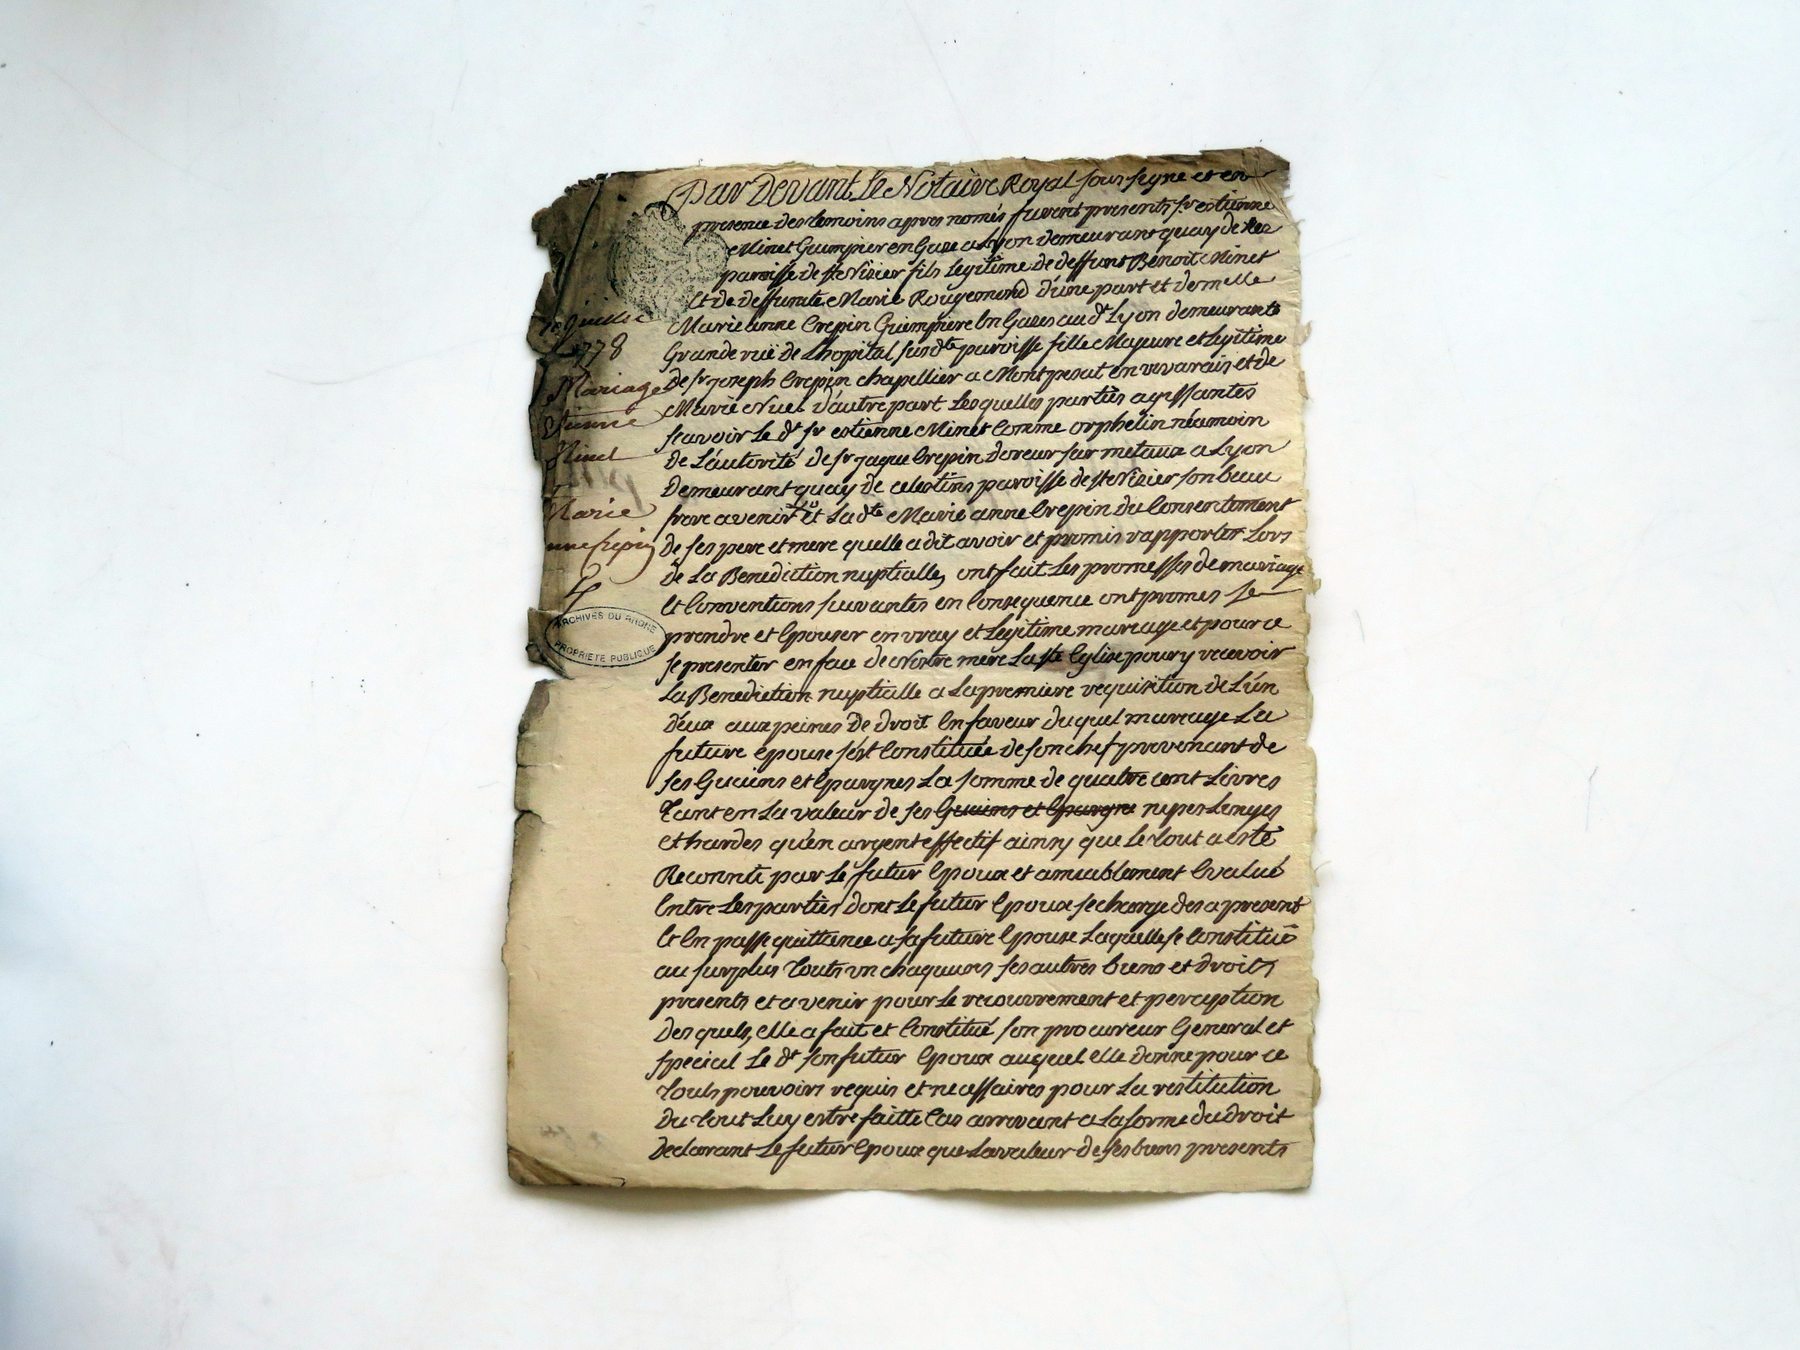 Par Devant Le Notaire Royal sous signe et en
presence des temoins apres només furent presents sr estienne
Minet Guimpier en Gase a Lyon demeurant quay de
paroisse de st Nisier fils Legitime de deffunt Benoit Minet
et de deffunte Marie Rougemond d'une part et demelle
Marie anne Crepin Guimpiere en Gases aud Lyon demeurante
Grande ruë de L'hopital susdte paroisse fille Majeure et Legitime
de sr joseph Crepin chapellier a Montpesat en vivarais et de
Marie d'autre part Lesquelles parties agissantes
scavoir Le dt sr estienne Minet Comme orphelin néamoin
de L'autorité de sr jaque Crepin doreur sur metaux a Lyon
demeurant quay de celestins paroisse de st Nisier son beau
frere avenir et La dte Marie anne Crepin du Consentement
de ses pere et mere quelle a dit avoir et promis rapporter Lors
de La Benediction nuptialle, ont fait Les promesses de mariage
et Conventions suivantes en Consequence ont promis se
prendre et Epouser en vray et Legitime mariage et pour ce
se presenter en face de Nostre mere La ste Eglise pour y recevoir
La Benediction nuptialle a La premiere requisition de L'un
d'eux aux peines de droit En faveur duquel mariage La
future epouse s'est Constituée de son chef provenant de
ses Guaiens et Epargnes La somme de quatre cent Livres
Tant en La valeur de ses Guaiens et Epargne nipes Linges
et hardes qu'en argent effectif ainsy que Le tout a esté
Reconnu par Le futur Epoux et amiablement Evalué
Entre Les parties dont Le futur Epoux se charge des a present
et En passe quittance a sa future Epouse Laquelle se Constitue
au surplus Touts un chaquuns ses autres biens et droits
presents et avenir pour Le recouvrement et perception
des quels, elle a fait et Constitué son procureur General et
special Le dt son futur Epoux auquel elle donne pour ce
Touts pouvoirs requis et necessaires pour La restitution
du Tout Luy estre faitte Cas arrivant a La forme du droit
declarant Le futur Epoux que La valeur de ses biens presents
1778
Mariage
Marie
ARCHIVES DU RHONE
PROPRIETE PUBLIQUE